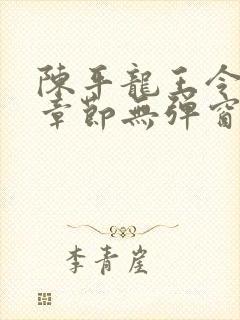 陳平龍王令
章節無彈窗
李青崖